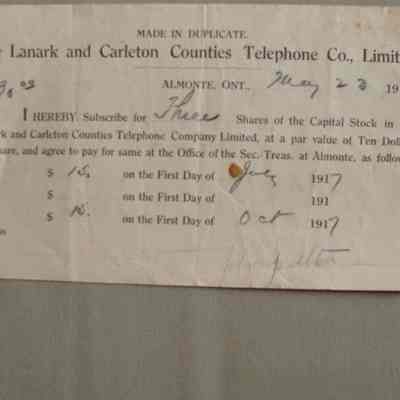 MADE IN DUPLICATE.
Lanark and Carleton Counties Telephone Co., Limit
ALMONTE, ONT., May 23 19
I HEREBY Subscribe for Three Shares of the Capital Stock in
rk and Carleton Counties Telephone Company Limited, at a par value of Ten Doll
are, and agree to pay for same at the Office of the Sec. Treas. at Almonte, as follow
$ 15 on the First Day of July 1917
$ on the First Day of 191
$ 15. on the First Day of Oct 1917